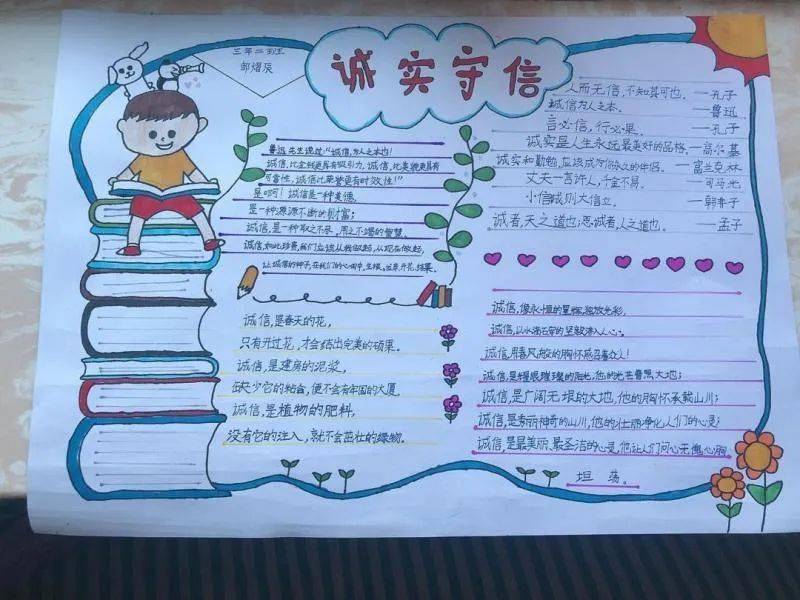 三年二班
邹熠辰
诚实守信
人而无信,不知其可也. —孔子
诚信为人之本. —鲁迅
言必信,行必果. —孔子
诚实是人生永远最美好的品格.—高尔基
诚实和勤勉,应该成为你永久的伴侣. —富兰克林
丈夫一言许人,千金不易. —司马光
小信诚则大信立. —韩非子
诚者,天之道也;思诚者,人之道也. —孟子
鲁迅先生说过:“诚信,为人之本也!
诚信,比金钱更具有吸引力,诚信,比美貌更具有
可靠性,诚信比荣誉更有时效性!”
是啊!诚信是一种美德,
是一种源源不断的财富;
诚信,是一种取之不尽,用之不竭的智慧.
诚信,如此珍贵,我们应该从我做起,从现在做起,
让诚信的种子,在我们的心田中,生根,发芽,开花,结果.
诚信,是春天的花,
只有开过花,才会结出完美的硕果.
诚信,是建房的泥浆,
缺少它的粘合,便不会有牢固的大厦.
诚信,是植物的肥料,
没有它的进入,就不会茁壮的绿物.
诚信,像永恒的星辉,绽放光彩,
诚信,以水滴石穿的坚毅沁入人心;
诚信,用春风般的胸怀感召着众人!
诚信,是耀眼璀璨的阳光,他的光芒普照大地;
诚信,是广阔无垠的大地,他的胸怀承载山川;
诚信,是秀丽神奇的山川,他的壮丽净化人们的心灵;
诚信,是最美丽、最圣洁的心灵,他让人们问心无愧,心胸
坦荡.